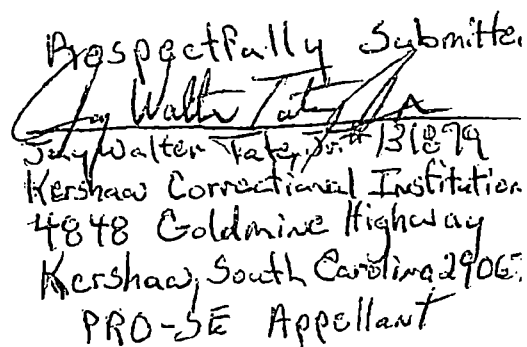 Respectfully Submitte
Walter
Walter #131879
Kershaw Correctional Institution
4848 Goldmine Highway
Kershaw, South Carolina 2906
PRO-SE Appellant